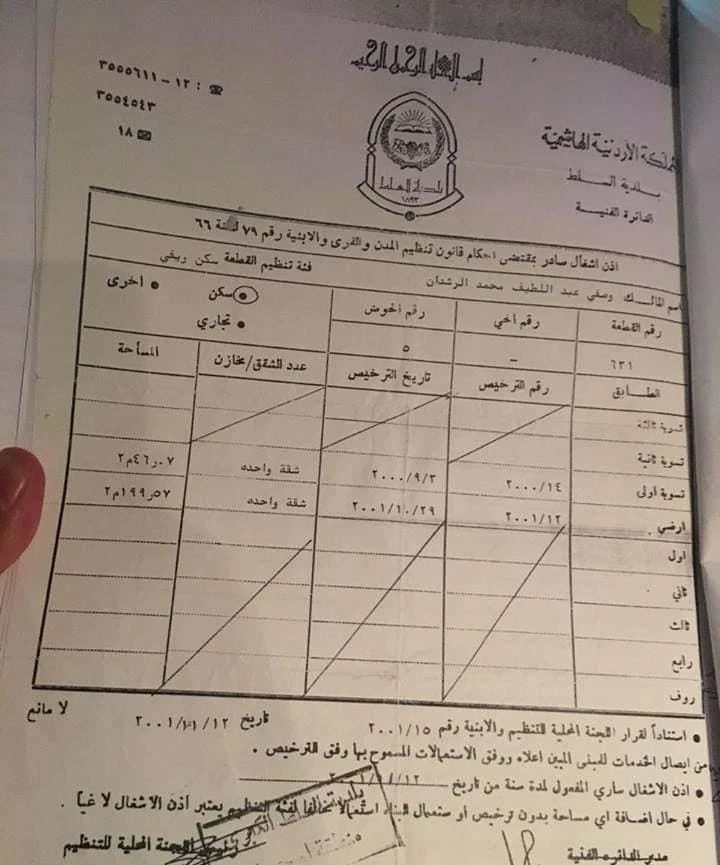 بسم الله الرحمن الرحيم
☎ : ١٢ – ٣٥٥٥٦١١
٣٥٥٤٥٤٣
✉ ١٨
المملكة الأردنية الهاشمية
بلدية السلط
الدائرة الفنية
بلدية السلط
١٨٩٣
اذن اشغال صادر بمقتضى احكام قانون تنظيم المدن والقرى والابنية رقم ٧٩ لسنة ٦٦
اسم المالك وصفي عبد اللطيف محمد الرشدان فئة تنظيم القطعة سكن ريفي
رقم القطعة رقم الحي رقم الحوض • سكن • اخرى
• تجاري
٦٣١ – ٥
الطابق رقم الترخيص تاريخ الترخيص عدد الشقق/مخازن المساحة
تسوية ثالثة
تسوية ثانية
تسوية اولى ٢٠٠٠/١٤ ٢٠٠٠/٩/٣ شقة واحده ٤٦٫٠٧م٢
ارضي ٢٠٠١/١٢ ٢٠٠١/١٠/٢٩ شقة واحده ١٩٩٫٥٧م٢
اول
ثاني
ثالث
رابع
روف
• استناداً لقرار اللجنة المحلية للتنظيم والابنية رقم ٢٠٠١/١٥ تاريخ ٢٠٠١/١١/١٢ لا مانع
من ايصال الخدمات للمبنى المبين اعلاه ووفق الاستعمالات المسموح بها وفق الترخيص .
• اذن الاشغال ساري المفعول لمدة سنة من تاريخ
• في حال اضافة اي مساحة بدون ترخيص او استعمال البناء استعمالا مخالفا لفئة التنظيم يعتبر أذن الاشغال لاغياً .
مدير الدائره الفنية رئيس اللجنة المحلية للتنظيم